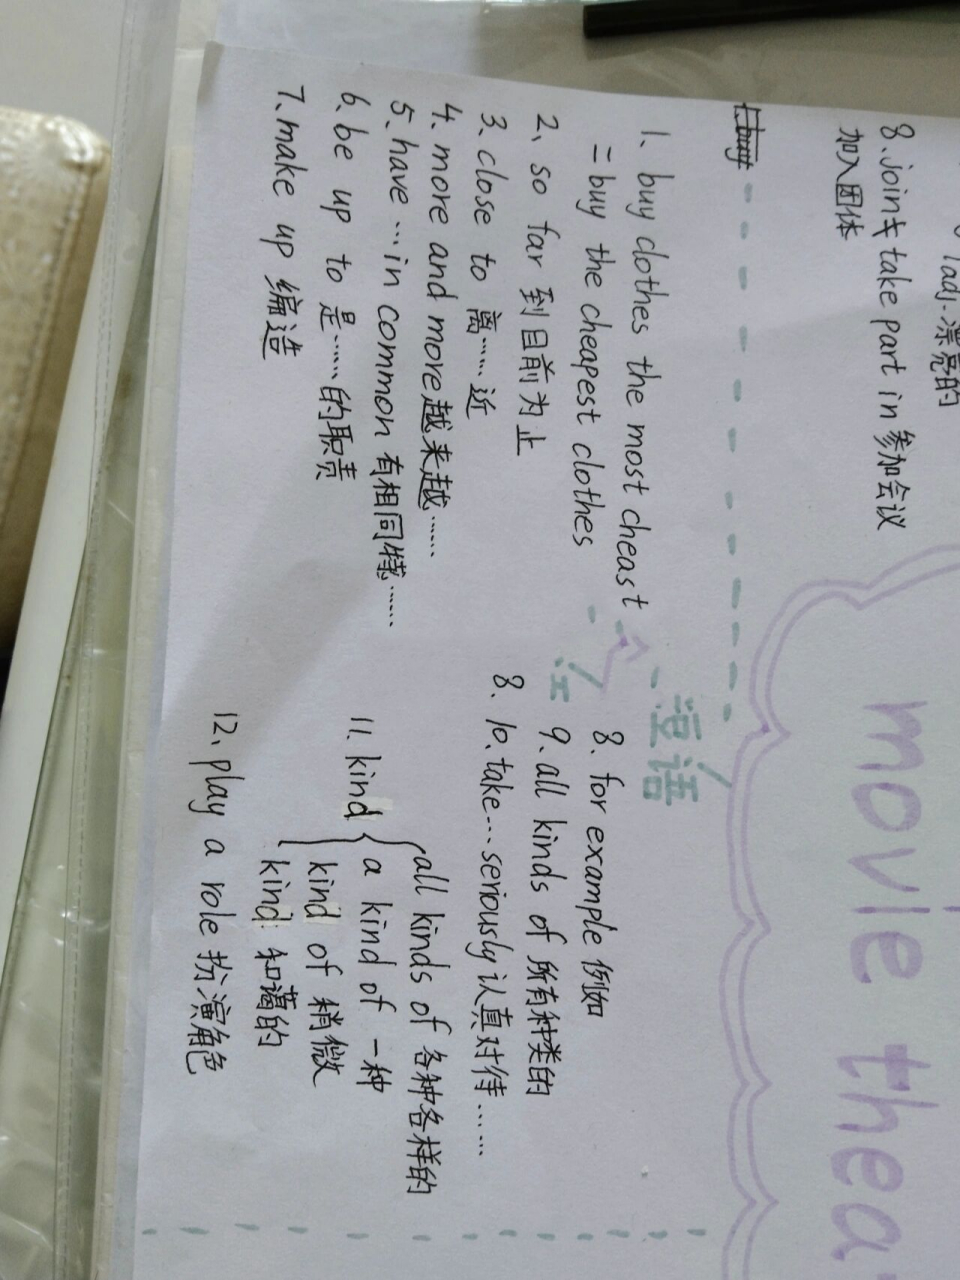 adj. 漂亮的
8、join ≠ take part in 参加会议
加入团体
movie thea
短语
1、buy clothes the most cheast
= buy the cheapest clothes
2、so far 到目前为止
3、close to 离……近
4、more and more 越来越……
5、have … in common 有相同特……
6、be up to 是……的职责
7、make up 编造
8、for example 例如
9、all kinds of 所有种类的
8、10、take … seriously 认真对待……
11、kind
all kinds of 各种各样的
a kind of 一种
kind of 稍微
kind 和蔼的
12、play a role 扮演角色